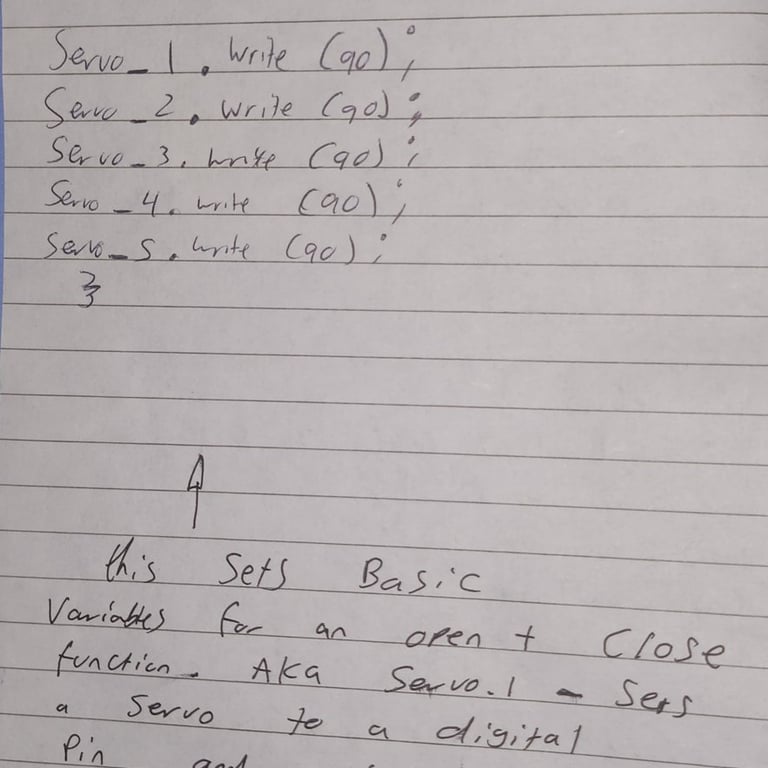 Servo_1.write (90);
Servo_2.write (90);
Servo_3.write (90);
Servo_4.write (90);
Servo_5.write (90);
}
this sets Basic
Variables for an open + Close
function. AKA Servo.1 - Sets
a servo to a digital
Pin and